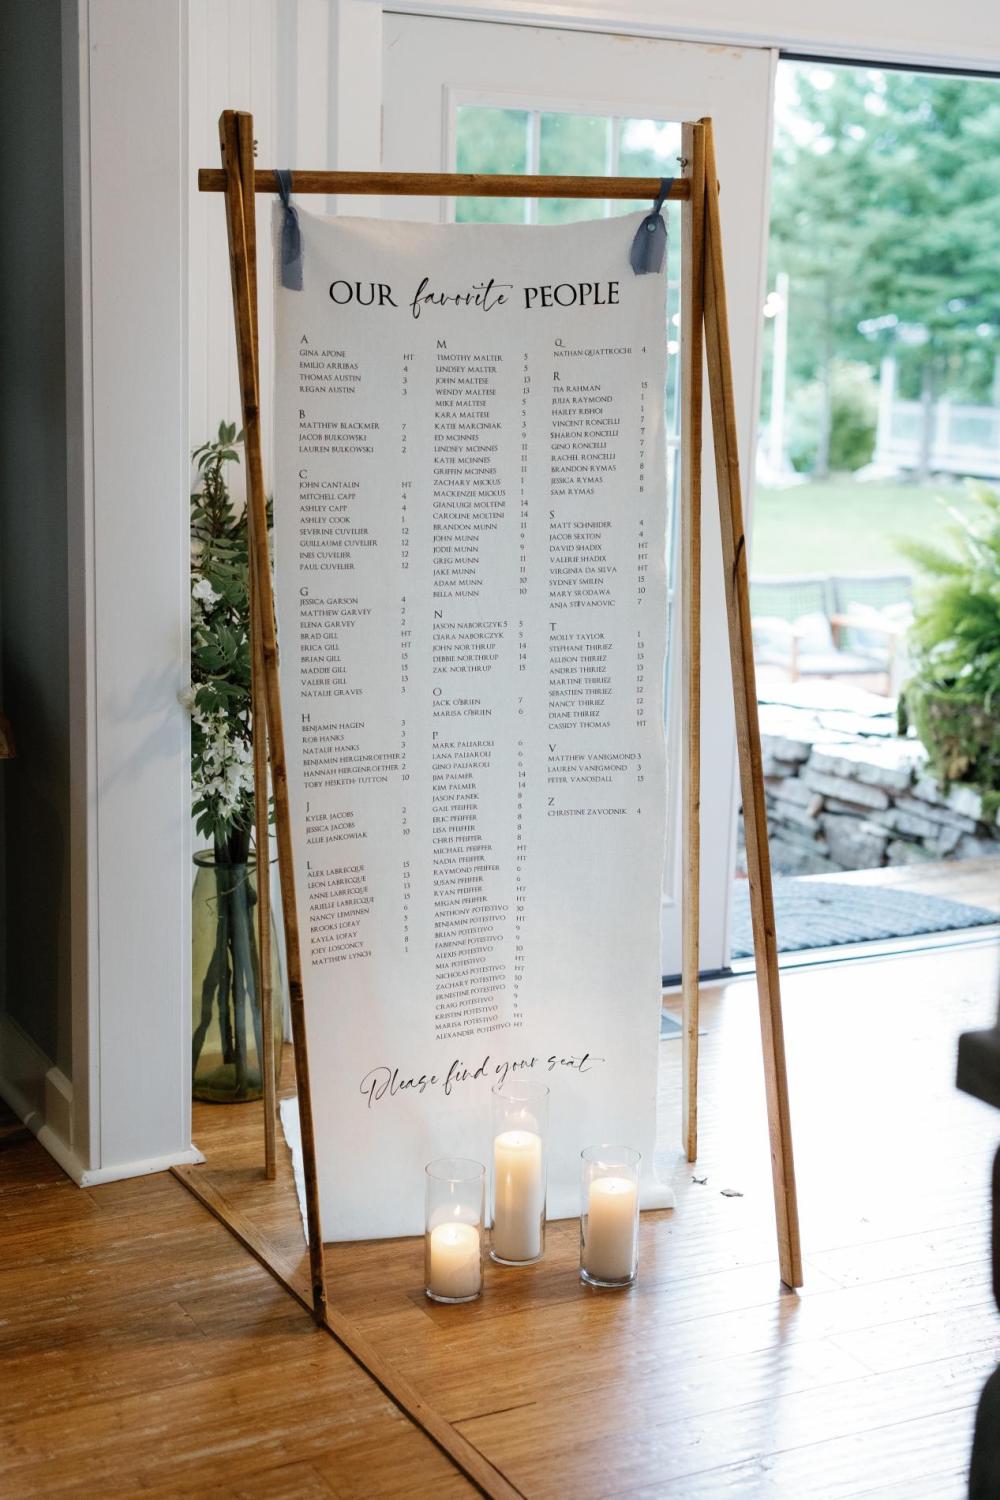 OUR favorite PEOPLE
A
GINA APONE HT
EMILIO ARRIBAS 4
THOMAS AUSTIN 3
REGAN AUSTIN 3
B
MATTHEW BLACKMER 7
JACOB BULKOWSKI 2
LAUREN BULKOWSKI 2
C
JOHN CANTALIN HT
MITCHELL CAPP 4
ASHLEY CAPP 4
ASHLEY COOK 1
SEVERINE CUVELIER 12
GUILLAUME CUVELIER 12
INES CUVELIER 12
PAUL CUVELIER 12
G
JESSICA GARSON 4
MATTHEW GARVEY 2
ELENA GARVEY 2
BRAD GILL HT
ERICA GILL HT
BRIAN GILL 15
MADDIE GILL 15
VALERIE GILL 13
NATALIE GRAVES 3
H
BENJAMIN HAGEN 3
ROB HANKS 3
NATALIE HANKS 3
BENJAMIN HERGENROETHER 2
HANNAH HERGENROETHER 2
TOBY HESKETH-TUTTON 10
J
KYLER JACOBS 2
JESSICA JACOBS 2
ALLIE JANKOWIAK 10
L
ALEX LABRECQUE 15
LEON LABRECQUE 13
ANNE LABRECQUE 13
ARIELLE LABRECQUE 15
NANCY LEMPINEN 6
BROOKS LOFAY 5
KAYLA LOFAY 5
JOEY LOSONCY 8
MATTHEW LYNCH 1
M
TIMOTHY MALTER 5
LINDSEY MALTER 5
JOHN MALTESE 13
WENDY MALTESE 13
MIKE MALTESE 5
KARA MALTESE 5
KATIE MARCINIAK 3
ED MCINNES 9
LINDSEY MCINNES 11
KATIE MCINNES 11
GRIFFIN MCINNES 11
ZACHARY MICKUS 1
MACKENZIE MICKUS 1
GIANLUIGI MOLTENI 14
CAROLINE MOLTENI 14
BRANDON MUNN 11
JOHN MUNN 9
JODIE MUNN 9
GREG MUNN 11
JAKE MUNN 11
ADAM MUNN 10
BELLA MUNN 10
N
JASON NABORCZYK 5 5
CIARA NABORCZYK 5
JOHN NORTHRUP 14
DEBBIE NORTHRUP 14
ZAK NORTHRUP 15
O
JACK O'BRIEN 7
MARISA O'BRIEN 6
P
MARK PALIAROLI 6
LANA PALIAROLI 6
GINO PALIAROLI 6
JIM PALMER 14
KIM PALMER 14
JASON PANEK 8
GAIL PFEIFFER 8
ERIC PFEIFFER 8
LISA PFEIFFER 8
CHRIS PFEIFFER 8
MICHAEL PFEIFFER HT
NADIA PFEIFFER HT
RAYMOND PFEIFFER 6
SUSAN PFEIFFER 6
RYAN PFEIFFER HT
MEGAN PFEIFFER HT
ANTHONY POTESTIVO 10
BENJAMIN POTESTIVO HT
BRIAN POTESTIVO 9
FABIENNE POTESTIVO 9
ALEXIS POTESTIVO 10
MIA POTESTIVO HT
NICHOLAS POTESTIVO HT
ZACHARY POTESTIVO 10
ERNESTINE POTESTIVO 9
CRAIG POTESTIVO 9
KRISTIN POTESTIVO 9
MARISA POTESTIVO HT
ALEXANDER POTESTIVO HT
Q
NATHAN QUATTROCHI 4
R
TIA RAHMAN 15
JULIA RAYMOND 1
HAILEY RISHOI 1
VINCENT RONCELLI 7
SHARON RONCELLI 7
GINO RONCELLI 7
RACHEL RONCELLI 7
BRANDON RYMAS 8
JESSICA RYMAS 8
SAM RYMAS 8
S
MATT SCHNEIDER 4
JACOB SEXTON 4
DAVID SHADIX HT
VALERIE SHADIX HT
VIRGINIA DA SILVA HT
SYDNEY SMILEN 15
MARY SRODAWA 10
ANJA STEVANOVIC 7
T
MOLLY TAYLOR 1
STEPHANE THIRIEZ 13
ALLISON THIRIEZ 13
ANDRES THIRIEZ 13
MARTINE THIRIEZ 12
SEBASTIEN THIRIEZ 12
NANCY THIRIEZ 12
DIANE THIRIEZ 12
CASSIDY THOMAS HT
V
MATTHEW VANEGMOND 3
LAUREN VANEGMOND 3
PETER VANOSDALL 15
Z
CHRISTINE ZAVODNIK 4
Please find your seat